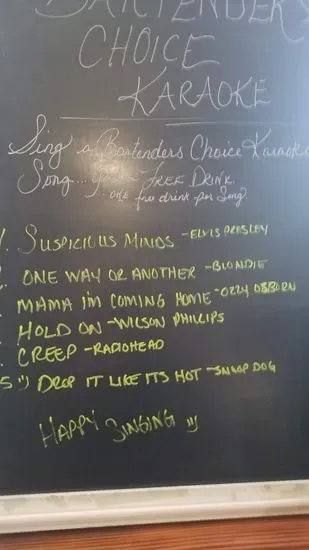 BARTENDER'S
CHOICE
KARAOKE
Sing a Bartenders Choice Karaoke
Song... FREE DRINK.
one free drink per Song!
1. SUSPICIOUS MINDS - ELVIS PRESLEY
ONE WAY OR ANOTHER - BLONDIE
MAMA I'M COMING HOME - OZZY OSBORN
HOLD ON - WILSON PHILLIPS
CREEP - RADIOHEAD
DROP IT LIKE ITS HOT - SNOOP DOG
HAPPY SINGING